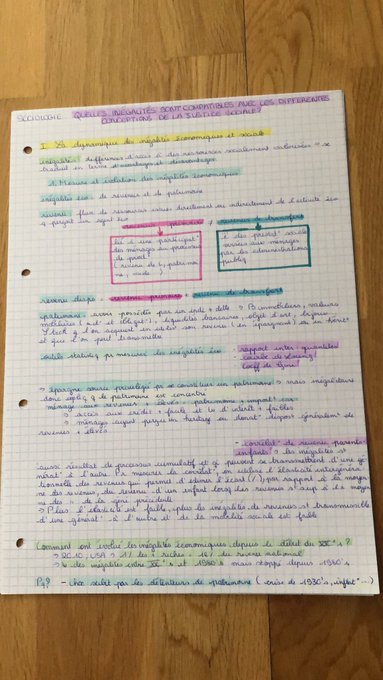 SOCIOLOGIE QUELLES INEGALITÉS SONT COMPATIBLES AVEC LES DIFFÉRENTES
CONCEPTIONS DE LA JUSTICE SOCIALE ?
I. La dynamique des inégalités économiques et sociales
inégalité : différences d'accès à des ressources socialement valorisées se
traduit en terme d'avantages et désavantages
1. Mesure et évolution des inégalités économiques
inégalités éco : de revenus et de patrimoine
revenu : flux de ressources issues directement ou indirectement de l'activité éco
perçu par un agent éco
revenus primaires / revenus de transfert
lié à une participat°
des ménages au processus
de prod°
(revenu de t, patrimoi
ne, mixte)
des prestat° sociales
versées aux ménages
par les administrations
publiq
revenu dispo = revenu primaire + revenu de transfert
patrimoine : avoir possédés par un indé
immobiliers, valeurs
bancaires, objet d'art, bijoux
outils statistiq pr mesurer les inégalités éco
- rapport inter-quantiles
- courbe de Lorenz
- coeff de
→ épargne source privilégié pr se constituer un patrimoine → mais inégalitaire
donc expliq q le patrimoine est concentré
ménage aux revenus + élevés = patrimoine + important car
→ accès aux crédit + facile et tx d'intérêt + faibles
→ ménages ayant perçu un héritage ou donat° dispost généralem° de
revenus + élevés
- corrélat° de revenu parents-
enfants → les inégalités st
aussi résultat de processus cumulatif et qi peuvent se transmettre d'une gé
nérat° à l'autre. Pr mesurer la corrélat°, on utilise l'élasticité intergénéra
tionnelle des revenus qui permet d'estimer l'écart (%) par rapport à la moyen
ne des revenus, du revenu d'un enfant lorsq les revenus st sup à la moyen
ne des de la gen précédente
→ Plus l'élasticité est faible, plus les inégalités de revenus st
d'une générat° à l'autre et de la mobilité sociale est faible
Comment ont évolué les inégalités économiques depuis le début du XXe s ?
→ 2010, USA → 1% les + riches = du revenu national
→ des inégalités entre XXe s et 1980's mais stoppé depuis 1980's
Pq ? - choc subit par les détenteurs de patrimoine (crise de 1930's, inflat° ...)